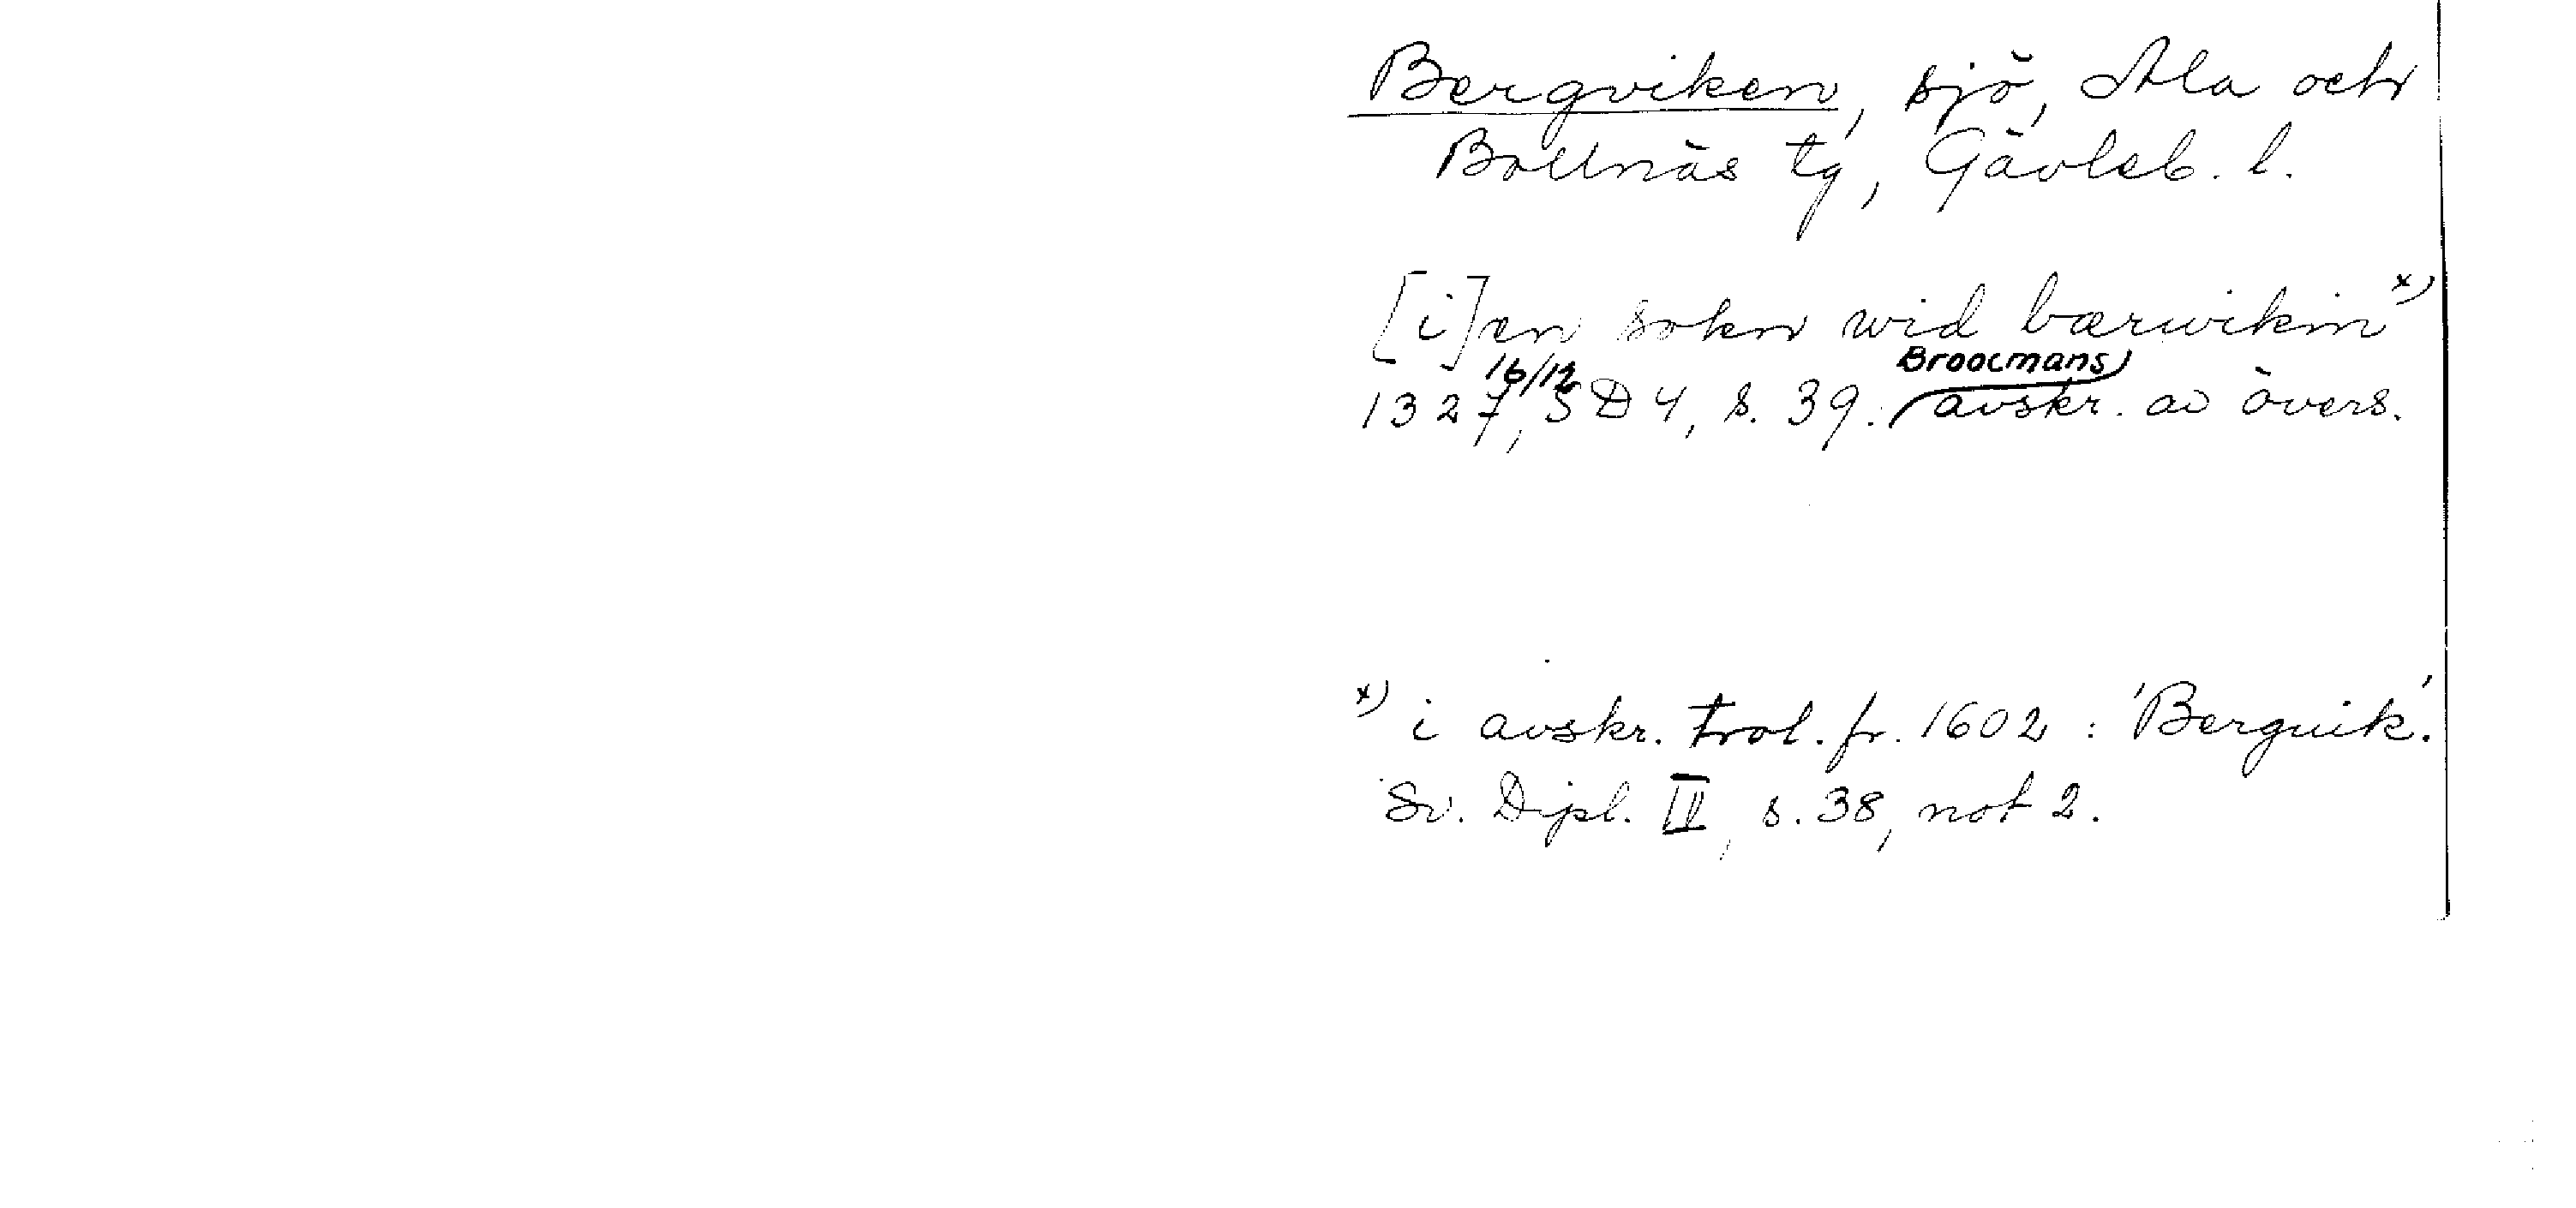 Bergviken, sjö, Ala och
Bollnäs tg, Gävleb. l.
[i] en sokn wid bærwikin x)
1327 16/12, SD 4, s. 39. Broocmans avskr. av övers.
x) i avskr. trol. fr. 1602 : 'Berguik'.
Sv. Dipl. IV, s. 38, not 2.